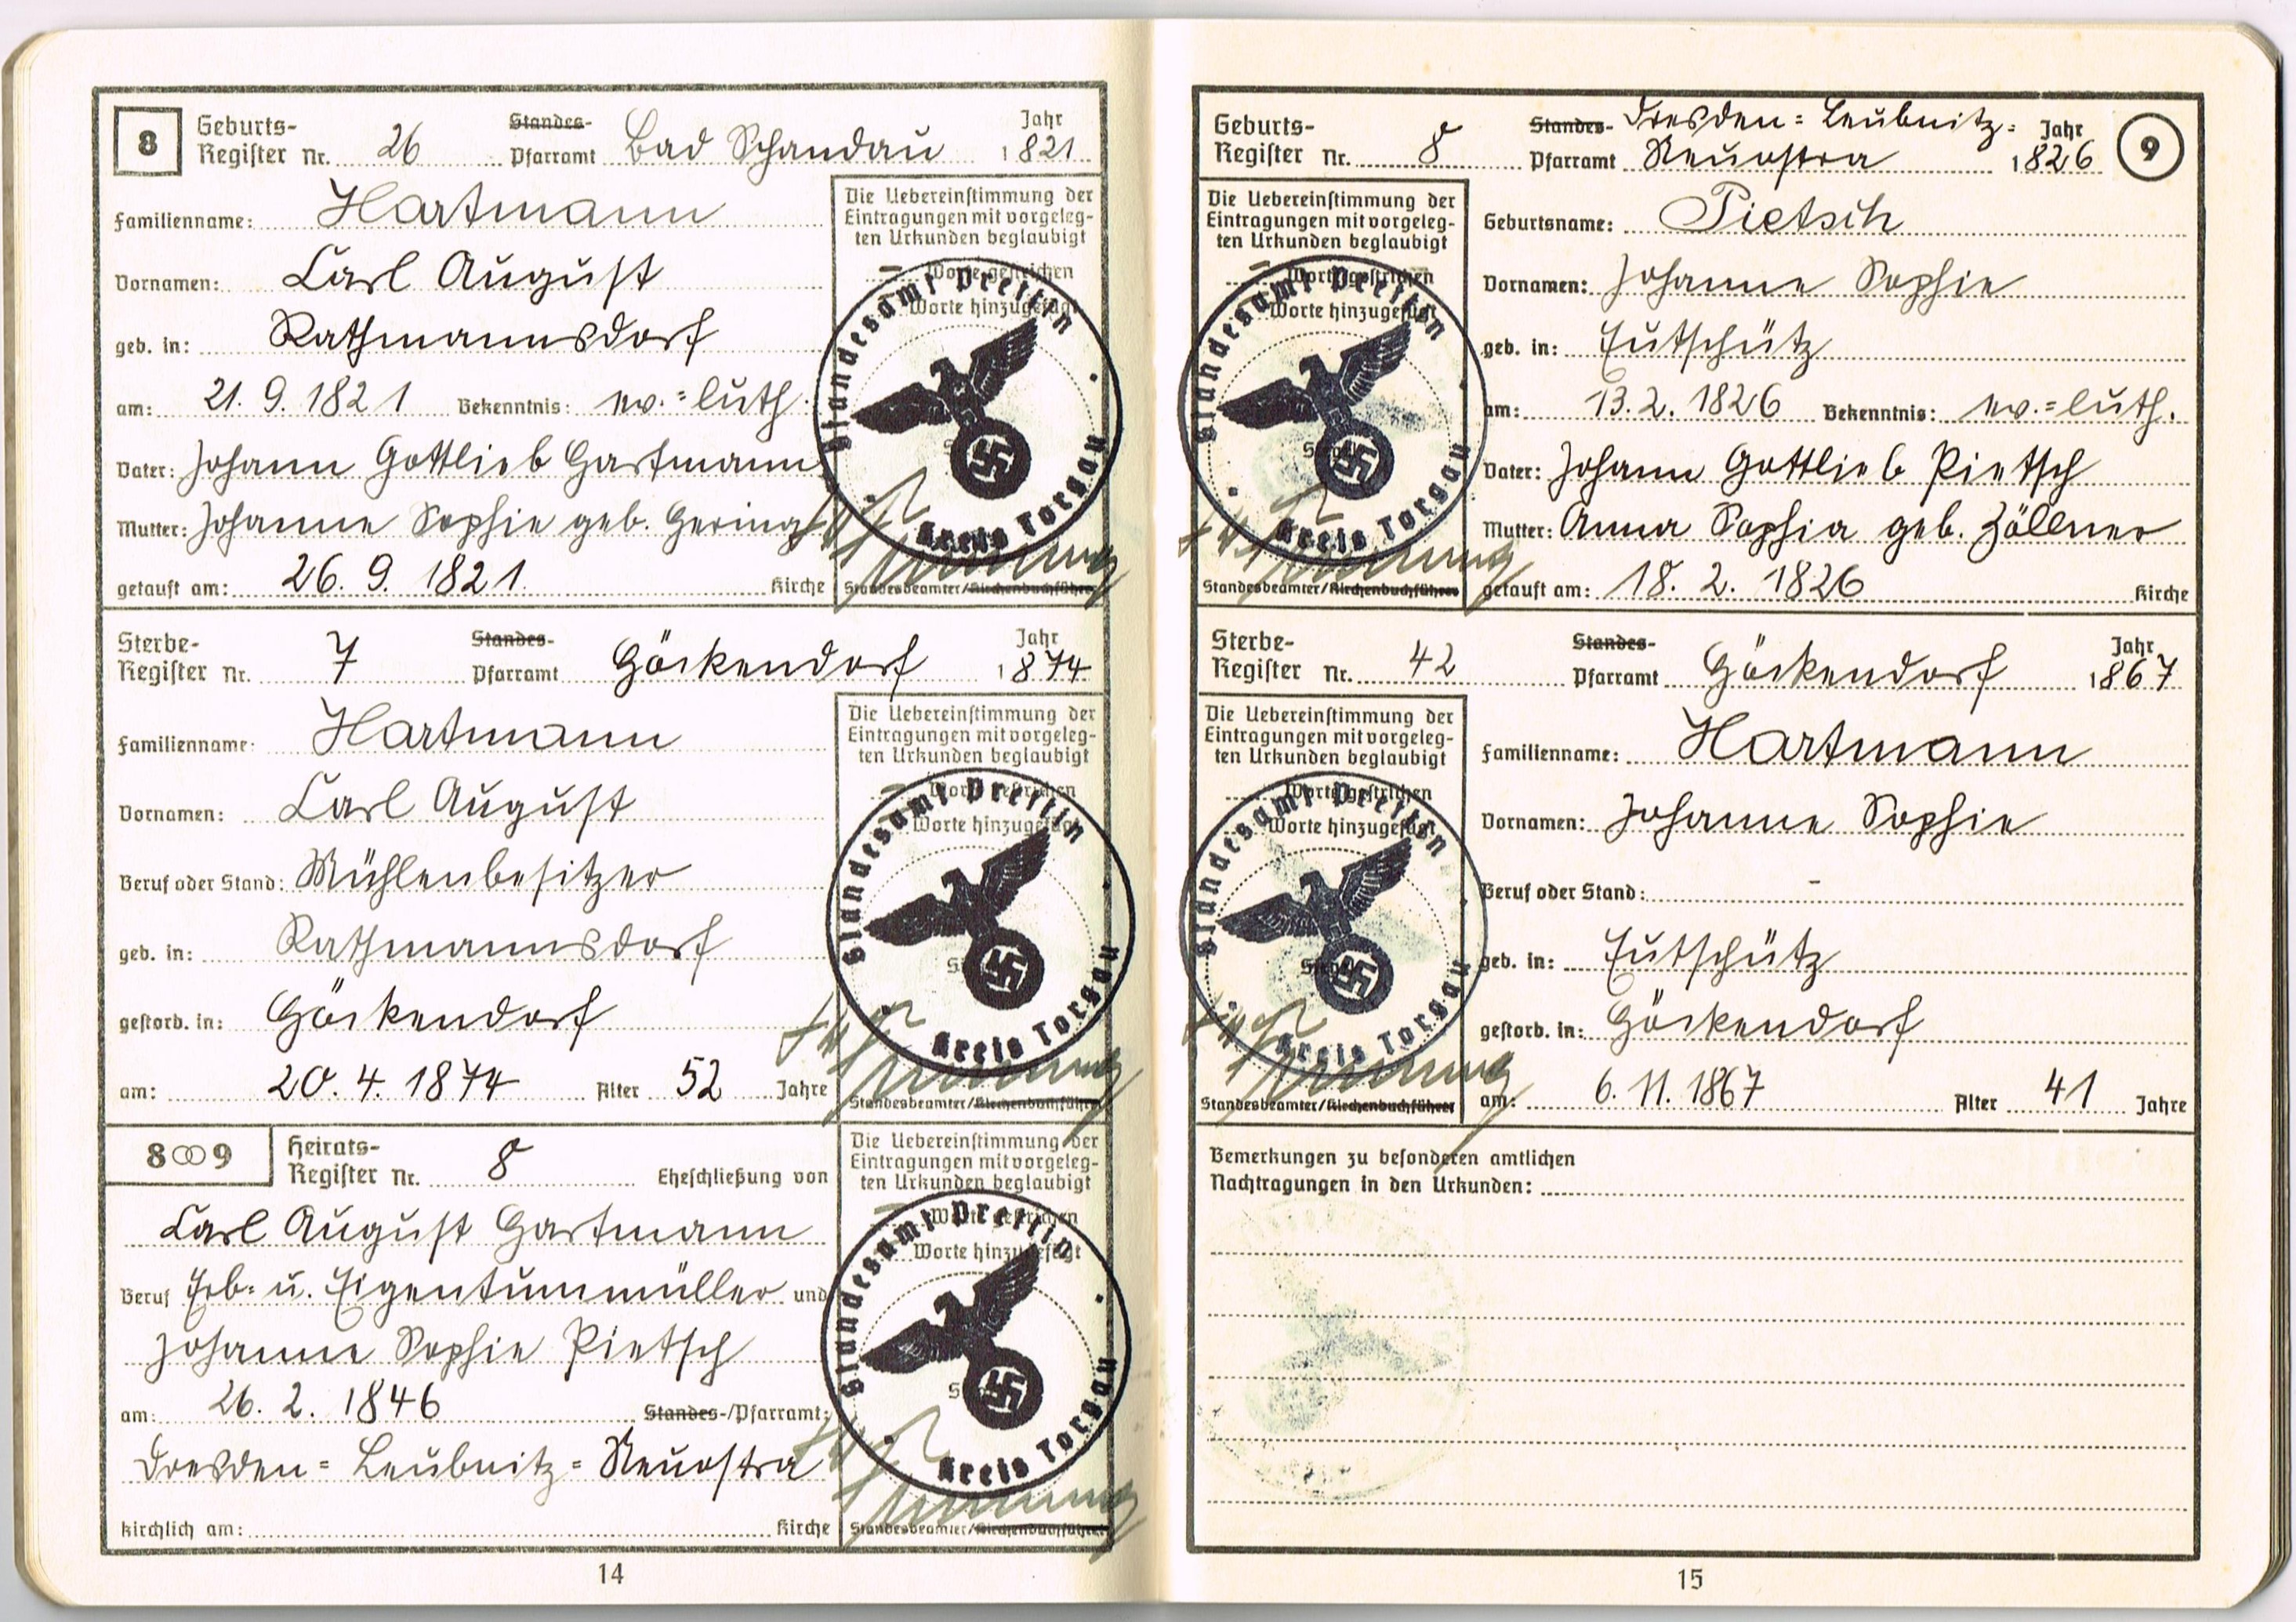 8
Geburts-
Register Nr. 26 Standes- Pfarramt Bad Schandau Jahr 1821
Familienname: Hartmann
Vornamen: Carl August
geb. in: Rathmannsdorf
am: 21. 9. 1821 Bekenntnis: ev.=luth.
Vater: Johann Gottlieb Hartmann
Mutter: Johanne Sophie geb. Hering
getauft am: 26. 9. 1821. Kirche
Die Uebereinstimmung der
Eintragungen mit vorgeleg-
ten Urkunden beglaubigt
– Worte gestrichen
Worte hinzugefügt
Standesamt Prettin
Kreis Torgau
Standesbeamter/Kirchenbuchführer
Sterbe-
Register Nr. 7 Standes- Pfarramt Göckendorf Jahr 1874
Familienname: Hartmann
Vornamen: Carl August
Beruf oder Stand: Mühlenbesitzer
geb. in: Rathmannsdorf
gestorb. in: Göckendorf
am: 20. 4. 1874 Alter 52 Jahre
Die Uebereinstimmung der
Eintragungen mit vorgeleg-
ten Urkunden beglaubigt
– Worte gestrichen
Worte hinzugefügt
Standesamt Prettin
Kreis Torgau
Standesbeamter/Kirchenbuchführer
8 ∞ 9
Heirats-
Register Nr. 8 Eheschließung von
Carl August Hartmann
Beruf Erb- u. Eigentummüller und
Johanne Sophie Pietsch
am: 26. 2. 1846 Standes-/Pfarramt:
Dresden = Leubnitz = Neuostra
kirchlich am: Kirche
Die Uebereinstimmung der
Eintragungen mit vorgeleg-
ten Urkunden beglaubigt
– Worte gestrichen
Worte hinzugefügt
Standesamt Prettin
Kreis Torgau
Standesbeamter/Kirchenbuchführer
14
Geburts-
Register Nr. 8 Standes- Pfarramt Dresden = Leubnitz =
Neuostra Jahr 1826
9
Die Uebereinstimmung der
Eintragungen mit vorgeleg-
ten Urkunden beglaubigt
– Worte gestrichen
Worte hinzugefügt
Standesamt Prettin
Kreis Torgau
Standesbeamter/Kirchenbuchführer
Geburtsname: Pietsch
Vornamen: Johanne Sophie
geb. in: Eutschütz
am: 13. 2. 1826 Bekenntnis: ev.=luth.
Vater: Johann Gottlieb Pietsch
Mutter: Anna Sophia geb. Zöllner
getauft am: 18. 2. 1826 Kirche
Sterbe-
Register Nr. 42 Standes- Pfarramt Göckendorf Jahr 1867
Die Uebereinstimmung der
Eintragungen mit vorgeleg-
ten Urkunden beglaubigt
Worte gestrichen
Worte hinzugefügt
Standesamt Prettin
Kreis Torgau
Standesbeamter/Kirchenbuchführer
Familienname: Hartmann
Vornamen: Johanne Sophie
Beruf oder Stand: –
geb. in: Eutschütz
gestorb. in: Göckendorf
am: 6. 11. 1867 Alter 41 Jahre
Bemerkungen zu besonderen amtlichen
Nachtragungen in den Urkunden:
15